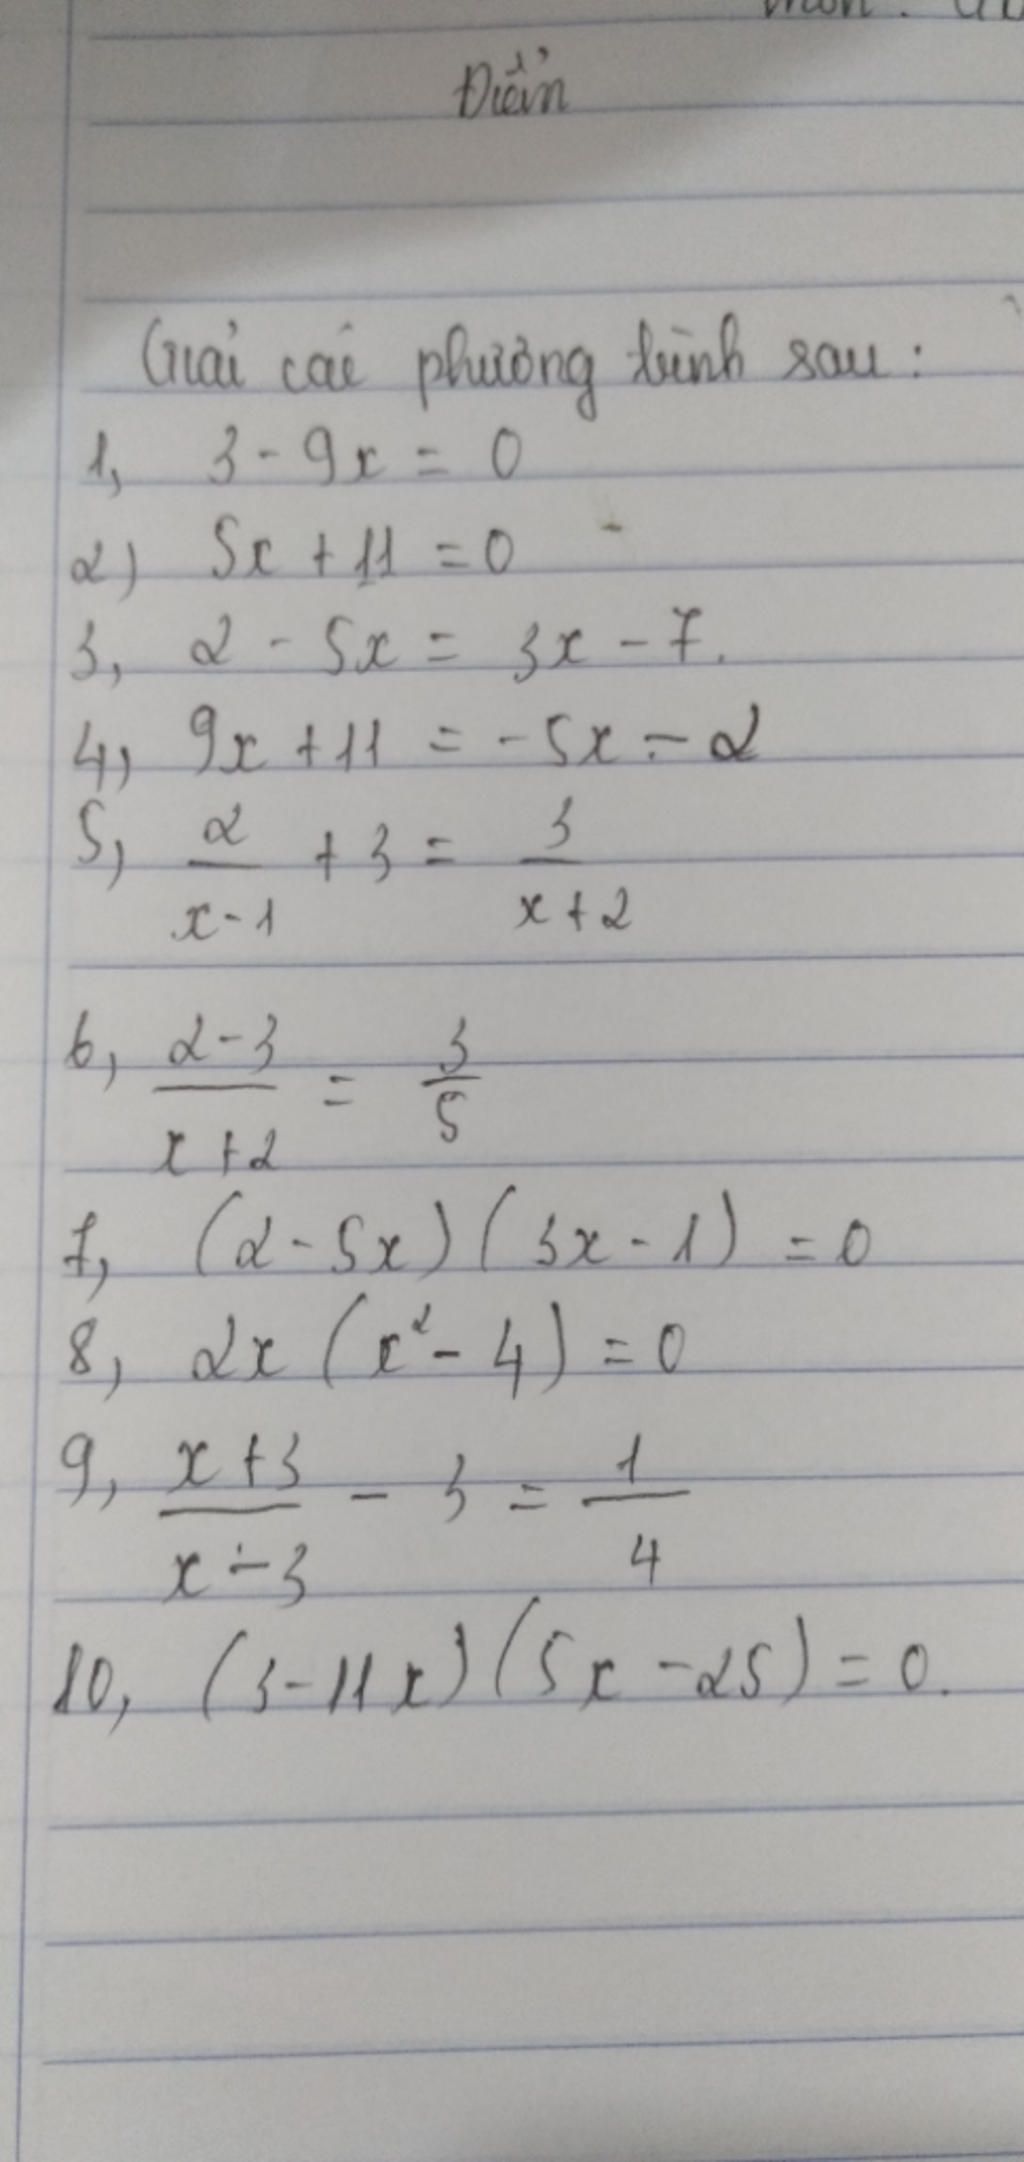 Điểm
Giải các phương trình sau:
1, 3 - 9x = 0
2) 5x + 11 = 0
3, 2 - 5x = 3x - 7.
4, 9x + 11 = -5x - 2
5, 2/(x-1) + 3 = 3/(x+2)
6, (2-3)/(x+2) = 3/5
7, (2-5x)(3x-1) = 0
8, 2x(x² - 4) = 0
9, (x+3)/(x-3) - 3 = 1/4
10, (3-11x)(5x-25) = 0.